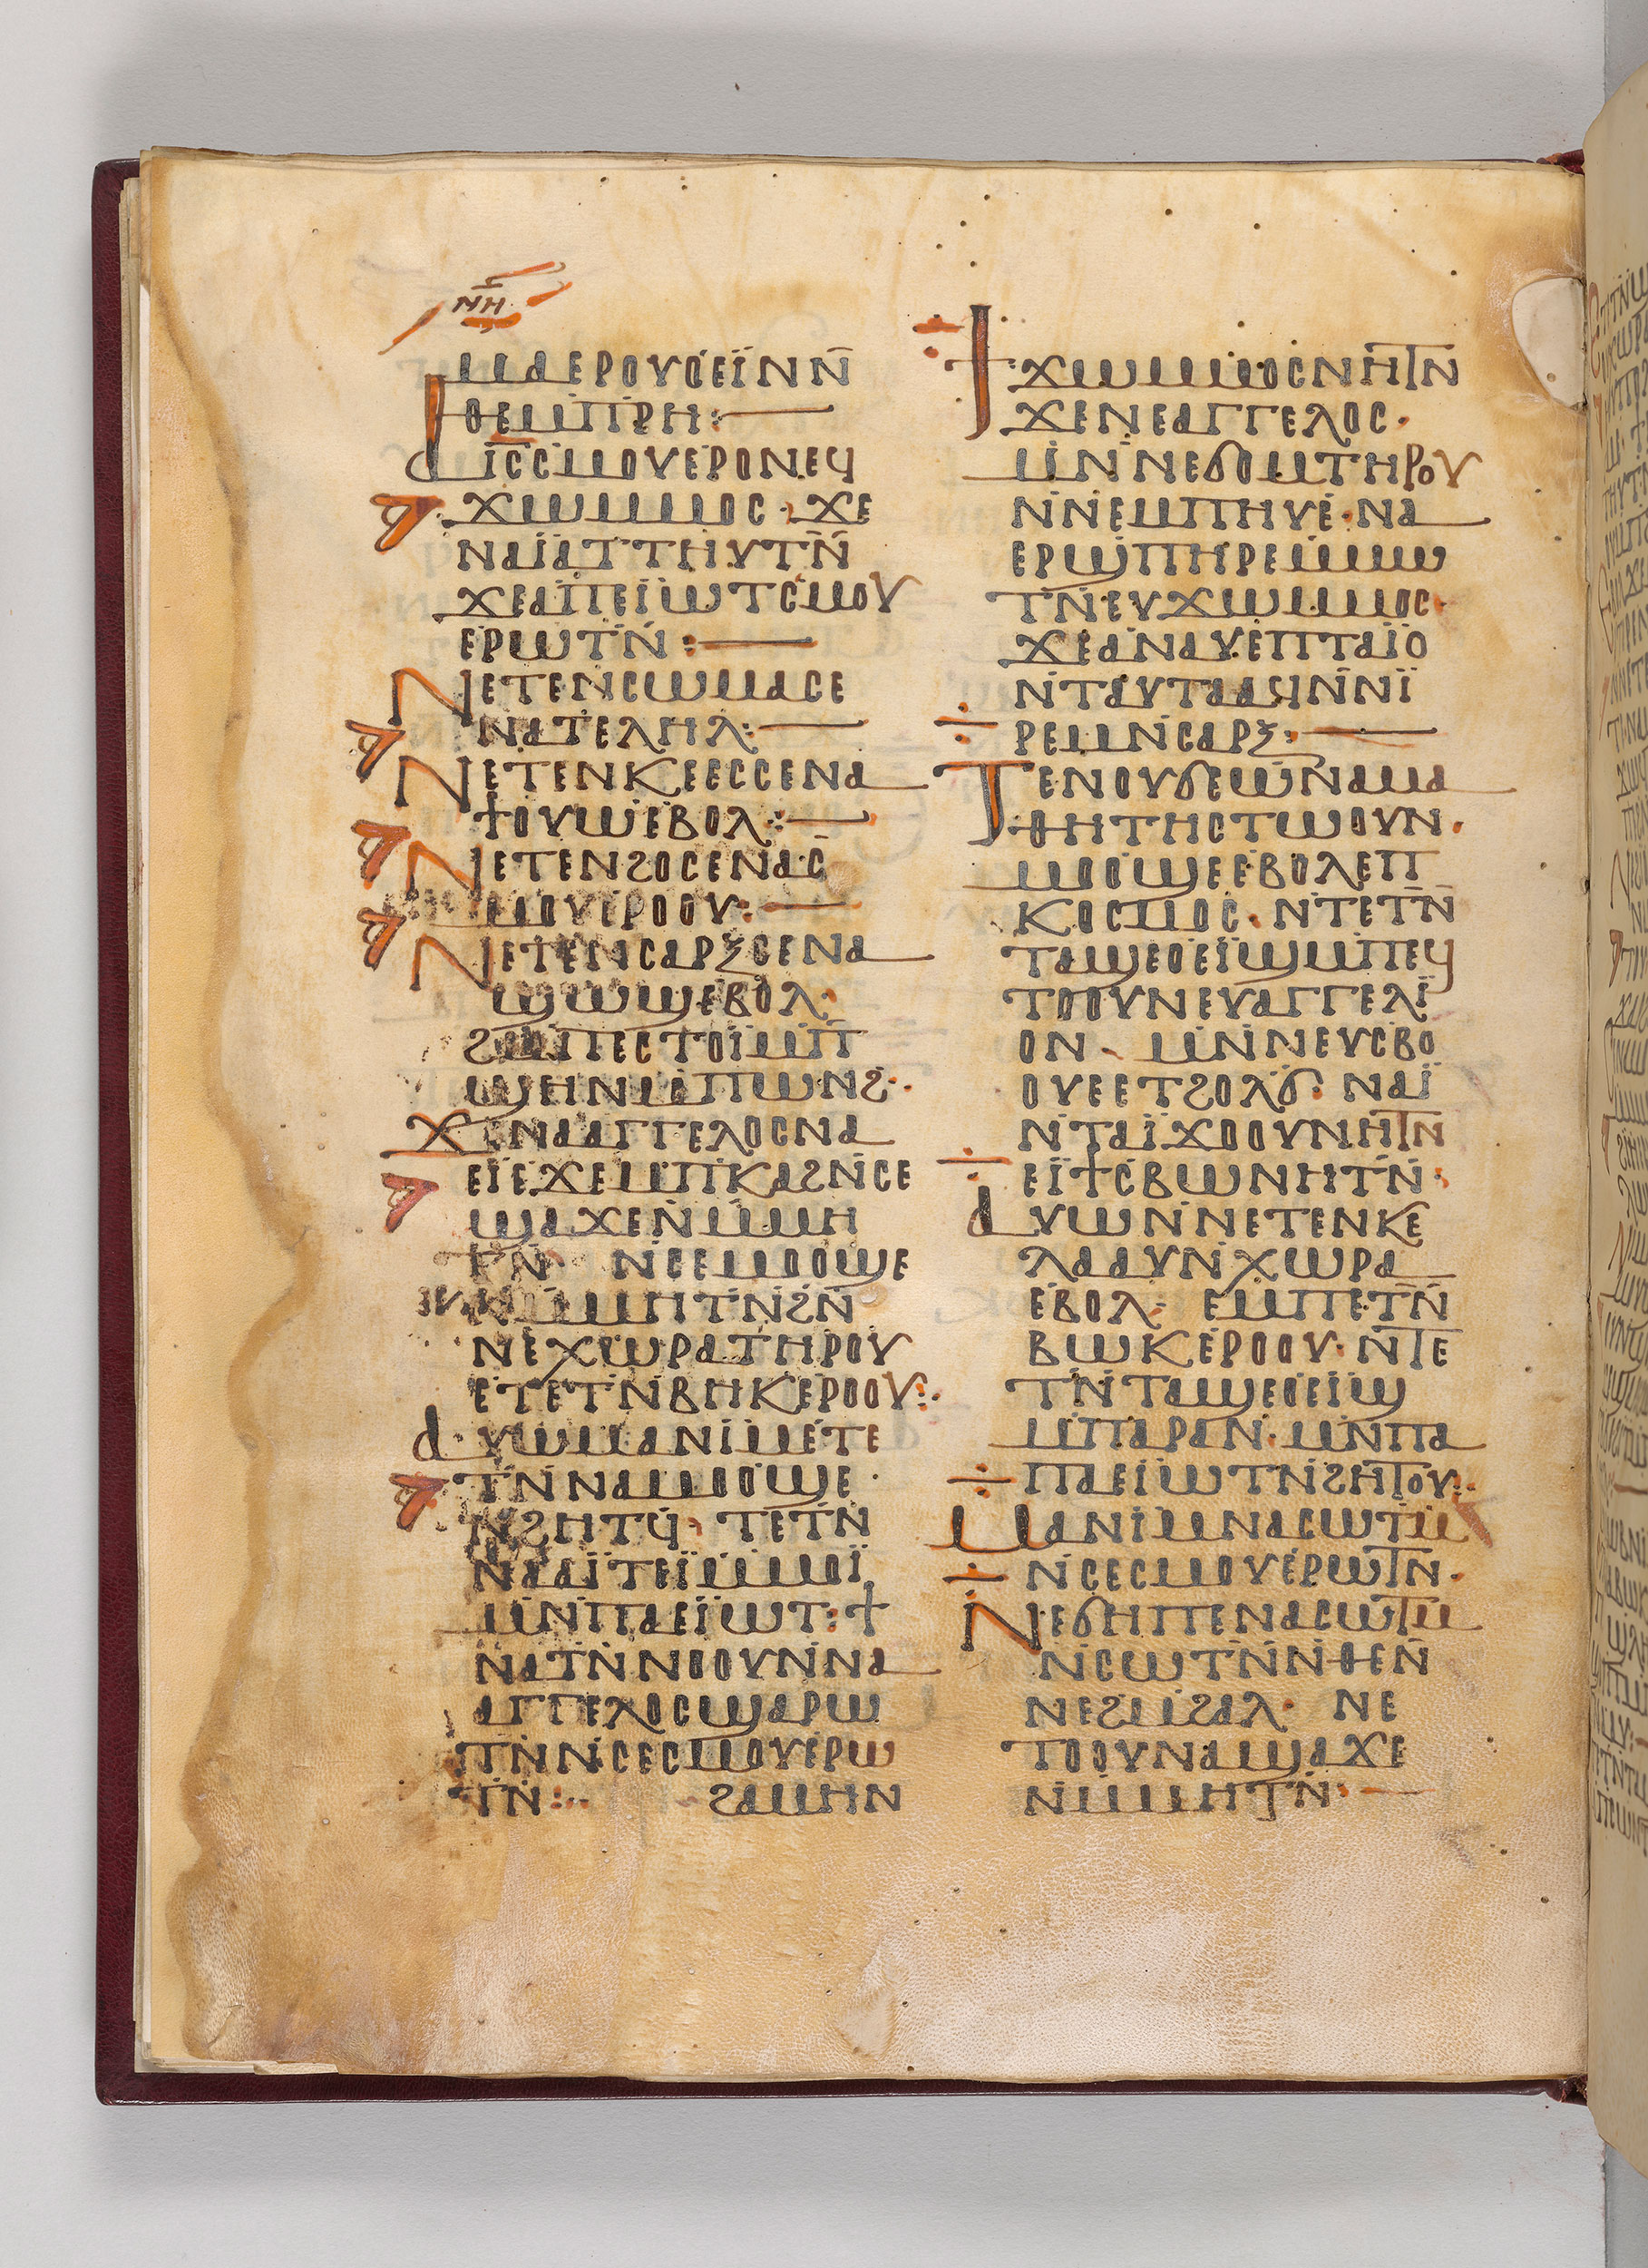 ⲛⲏ
ⲙⲁⲉⲣⲟⲩⲟⲉⲓ̈ⲛⲛ̄
ⲑⲉⲙⲡⲣⲏ:
ⲁⲓ̅ⲥ̅ⲥⲙⲟⲩⲉⲣⲟⲛⲉϥ
ϫⲱⲙⲙⲟⲥ· ϫⲉ
ⲛⲁⲓ̈ⲁⲧⲧⲏⲩⲧⲛ̄
ϫⲉⲁⲡⲉⲓ̈ⲱⲧⲥⲙⲟⲩ
ⲉⲣⲱⲧⲛ̄:
ⲛⲉⲧⲉⲛⲥⲱⲙⲁⲥⲉ
ⲛⲁⲧⲉⲗⲏⲗ:
ⲛⲉⲧⲉⲛⲕⲉⲉⲥⲥⲉⲛⲁ
ϯⲟⲩⲱⲉⲃⲟⲗ:
ⲛⲉⲧⲉⲛϩⲟⲥⲉⲛⲁⲥ̄
ⲙⲟⲩⲉⲣⲟⲟⲩ:
ⲛⲉⲧⲉⲛⲥⲁⲣⲝⲥⲉⲛⲁ
ϣⲱϣⲉⲃⲟⲗ·
ϩⲙⲡⲉⲥⲧⲟⲓ̈ⲙⲡ̄
ϣⲏⲛⲙⲡⲱⲛϩ·
ϫⲉⲛⲁⲁⲅⲅⲉⲗⲟⲥⲛⲁ
ⲉⲓ̈ⲉϫⲉⲙⲡⲕⲁϩⲛ̄ⲥⲉ
ϣⲁϫⲉⲛⲙⲙⲏ
ⲧⲛ̄ ⲛ̄ⲥⲉⲙⲟⲟϣⲉ
ⲛⲙⲙⲏⲧⲛ̄ϩⲛ̄
ⲛⲉⲭⲱⲣⲁⲧⲏⲣⲟⲩ
ⲉⲧⲉⲧⲛ̄ⲃⲏⲕⲉⲣⲟⲟⲩ:
ⲁⲩⲱⲙⲁⲛⲓⲙⲉⲧⲉ
ⲧⲛ̄ⲛⲁⲙⲟⲟϣⲉ·
ⲛ̄ϩⲏⲧϥ̄· ⲧⲉⲧⲛ̄
ⲛⲁⲁⲓ̈ⲧⲉⲓ̈ⲙⲙⲟⲓ̈
ⲙⲛ̄ⲡⲁⲉⲓ̈ⲱⲧ: ϯ
ⲛⲁⲧⲛ̄ⲛⲟⲟⲩⲛ̄ⲛⲁ
ⲁⲅⲅⲉⲗⲟⲥϣⲁⲣⲱ
ⲧⲛ̄ⲛ̄ⲥⲉⲥⲙⲟⲩⲉⲣⲱ
ⲧⲛ̄: ϩⲁⲙⲏⲛ
ϯϫⲱⲙⲙⲟⲥⲛⲏⲧⲛ̄
ϫⲉⲛⲉⲁⲅⲅⲉⲗⲟⲥ·
ⲙⲛ̄ⲛⲉϭⲟⲙⲧⲏⲣⲟⲩ
ⲛ̄ⲛⲉⲙⲡⲏⲩⲉ·ⲛⲁ
ⲉⲣϣⲡⲏⲣⲉⲙⲙⲱ
ⲧⲛ̄ⲉⲩϫⲱⲙⲙⲟⲥ·
ϫⲉⲁⲛⲁⲩⲉⲡⲧⲁⲓ̈ⲟ
ⲛ̄ⲧⲁⲩⲧⲁⲁϥⲛ̄ⲛⲓ̈
ⲣⲉⲙⲛ̄ⲥⲁⲣⲝ:
ⲧⲉⲛⲟⲩϭⲉⲱⲛⲁⲙⲁ
ⲑⲏⲧⲏⲥⲧⲱⲟⲩⲛ·
ⲙⲟⲟϣⲉⲉⲃⲟⲗⲉⲡ
ⲕⲟⲥⲙⲟⲥ· ⲛⲧⲉⲧⲛ̄
ⲧⲁϣⲉⲟⲉⲓ̈ϣⲙⲡⲉϥ
ⲧⲟⲟⲩⲛⲉⲩⲁⲅⲅⲉⲗⲓ̈
ⲟⲛ· ⲙⲛ̄ⲛⲉⲩⲥⲃⲟ
ⲟⲩⲉⲉⲧϩⲟⲗϭ· ⲛⲁⲓ̈
ⲛ̄ⲧⲁⲓ̈ϫⲟⲟⲩⲛⲏⲧⲛ̄
ⲉⲓ̈ϯⲥⲃⲱⲛⲏⲧⲛ̄·
ⲁⲩⲱⲛ̄ⲛⲉⲧⲉⲛⲕⲉ
ⲗⲁⲁⲩⲛ̄ⲭⲱⲣⲁ
ⲉⲃⲟⲗ· ⲉⲙⲡⲉⲧⲛ̄
ⲃⲱⲕⲉⲣⲟⲟⲩ·ⲛ̄ⲧⲉ
ⲧⲛ̄ⲧⲁϣⲉⲟⲉⲓ̈ϣ
ⲙⲡⲁⲣⲁⲛ·ⲙⲛ̄ⲡⲁ
ⲡⲁⲉⲓ̈ⲱⲧⲛ̄ϩⲏⲧⲟⲩ:
ⲙⲁⲛⲓⲙⲛⲁⲥⲱⲧⲙ̄
ⲛ̄ⲥⲉⲥⲙⲟⲩⲉⲣⲱⲧⲛ̄·
ⲛⲉϭⲏⲡⲉⲛⲁⲥⲱⲧⲙ̄
ⲛ̄ⲥⲱⲧⲛ̄ⲛ̄ⲑⲉⲛ̄
ⲛⲉϩⲙ̄ϩⲁⲗ· ⲛⲉ
ⲧⲟⲟⲩⲛⲁϣⲁϫⲉ
ⲛⲙⲙⲏⲧⲛ̄·